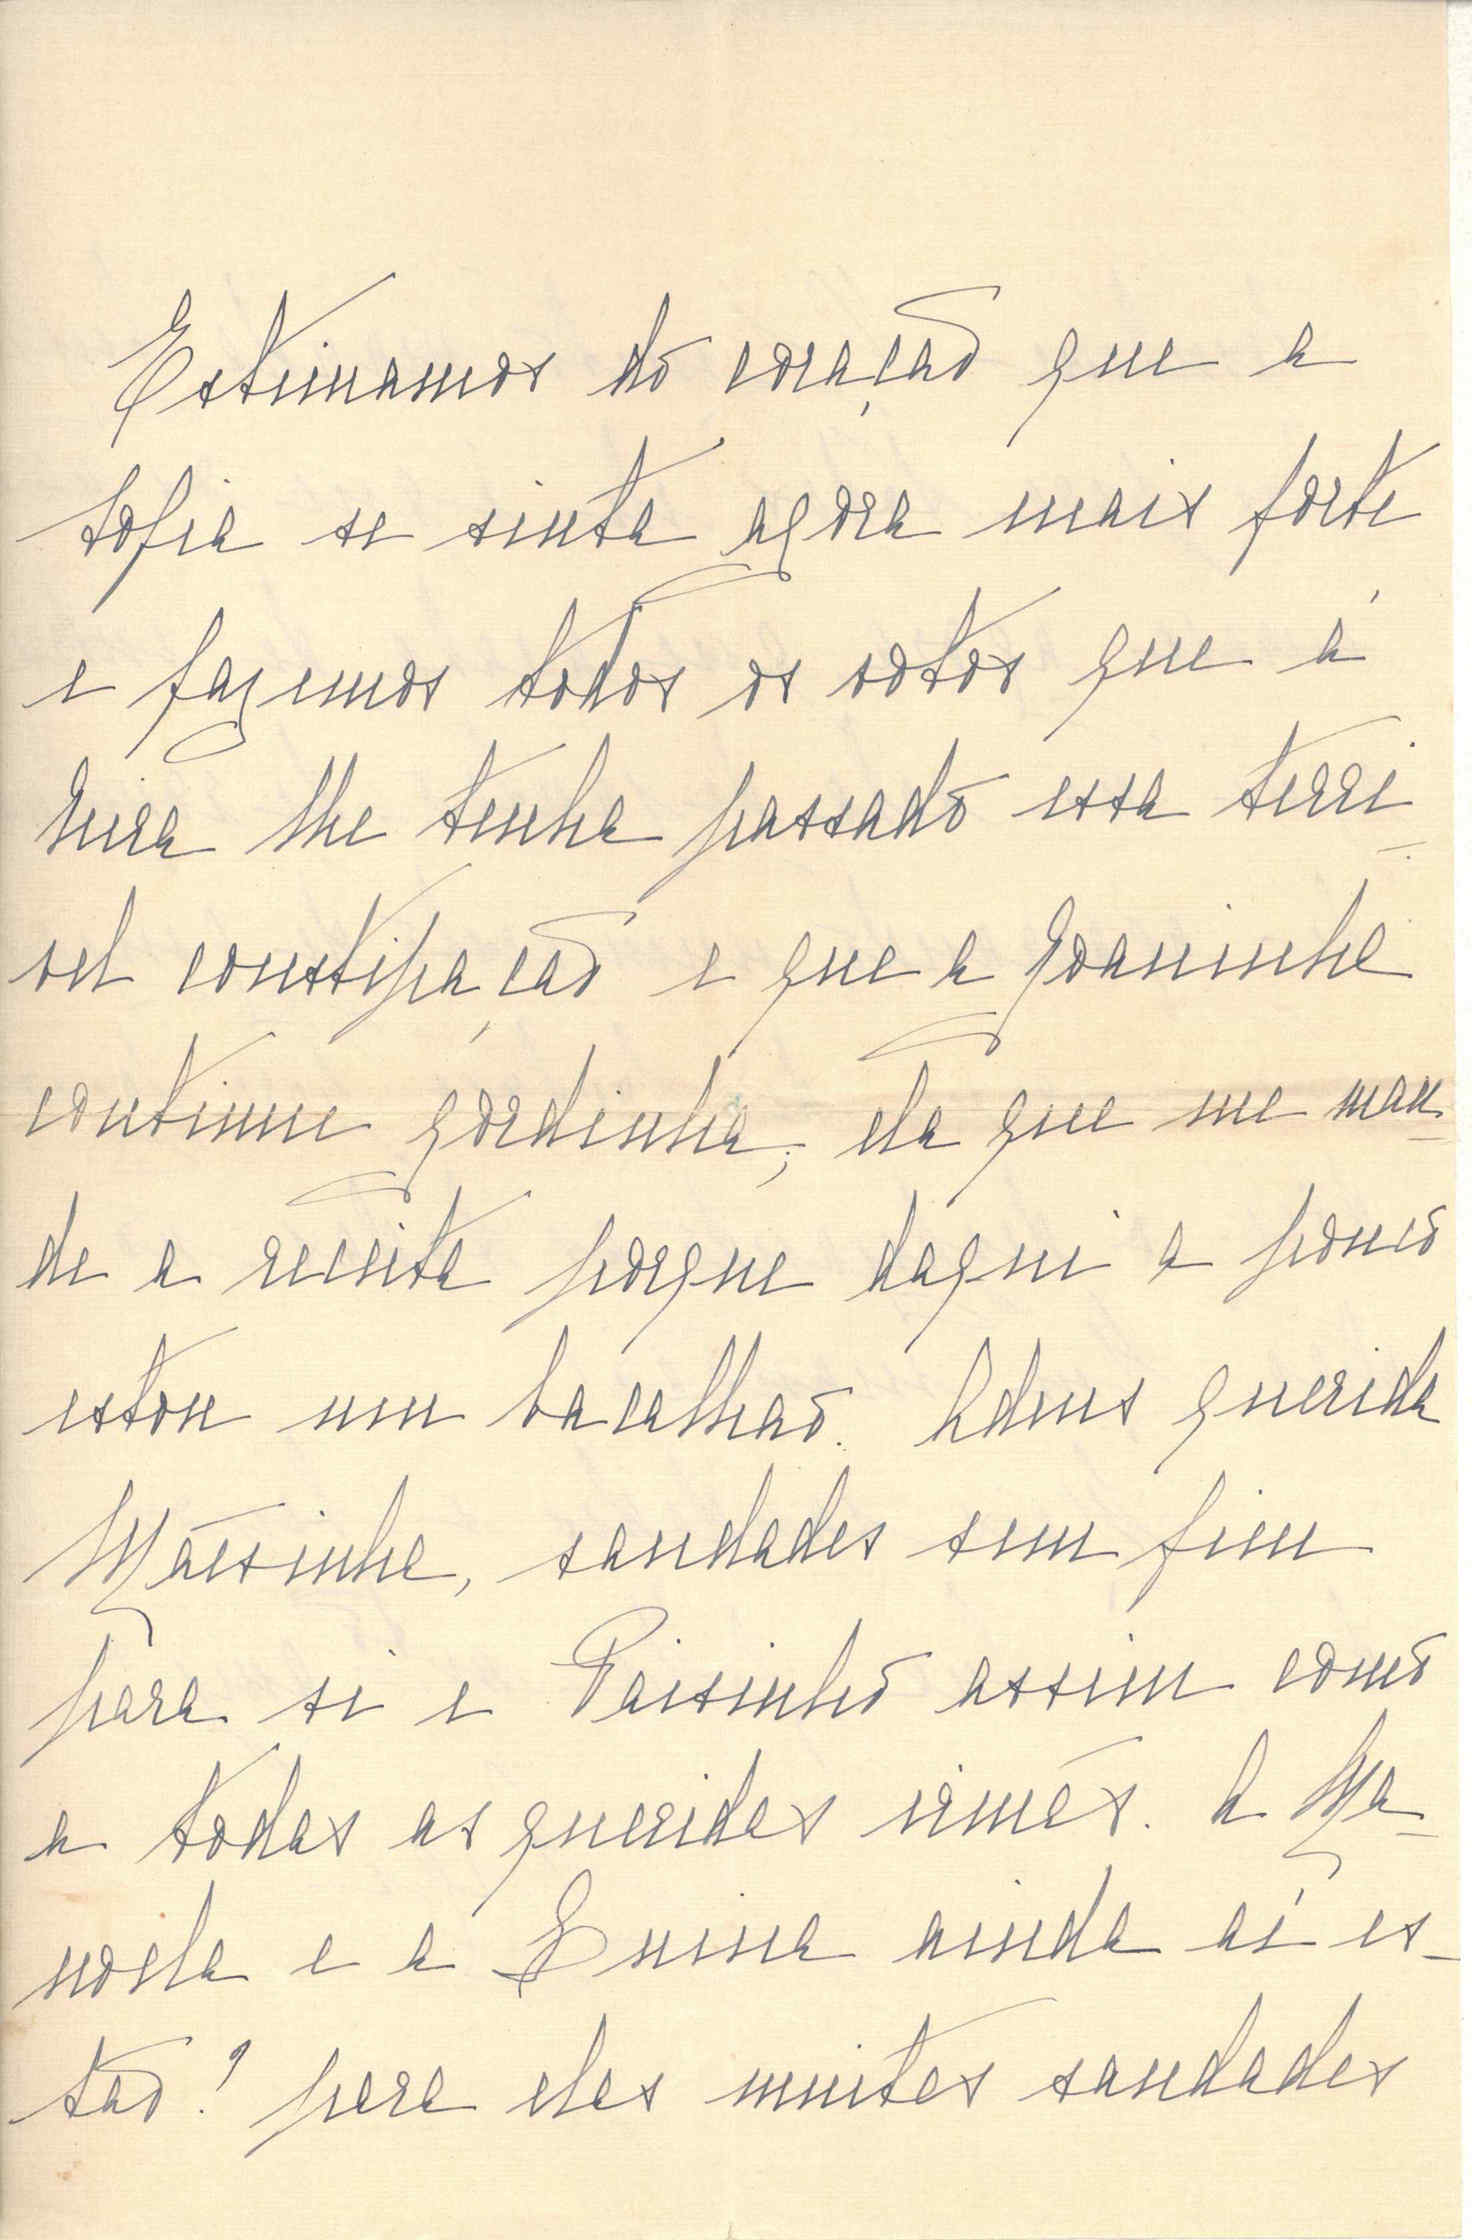 Estimamos do coração que a
Sofia se sinta agora mais forte
e fazemos todos os votos que á
Mira lhe tenha passado essa terri-
vel constipação e que a Joaninha
continue gordinha; ela que me man-
de a receita porque daqui a pouco
estou um bacalhao. Adeus querida
Mãesinha, saudades sem fim
para si e Paisinho assim como
a todas as queridas irmãs. A Ma-
noela e a Enina ainda aí es-
tão? para elas muitas saudades